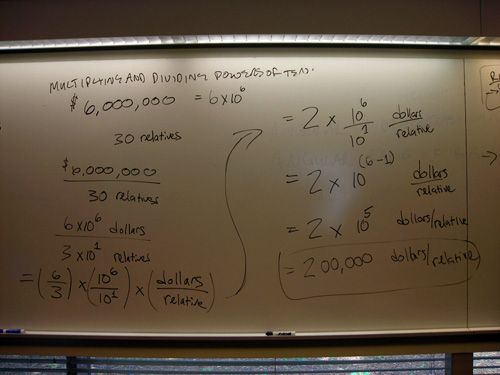 MULTIPLYING AND DIVIDING POWERS OF TEN.
$6,000,000 = 6x10^6
30 relatives
$6,000,000
30 relatives
6x10^6 dollars
3x10^1 relatives
= (6/3) x (10^6/10^1) x (dollars/relative)
= 2 x 10^6/10^1 dollars/relative
= 2 x 10^(6-1) dollars/relative
= 2 x 10^5 dollars/relative
= 200,000 dollars/relative